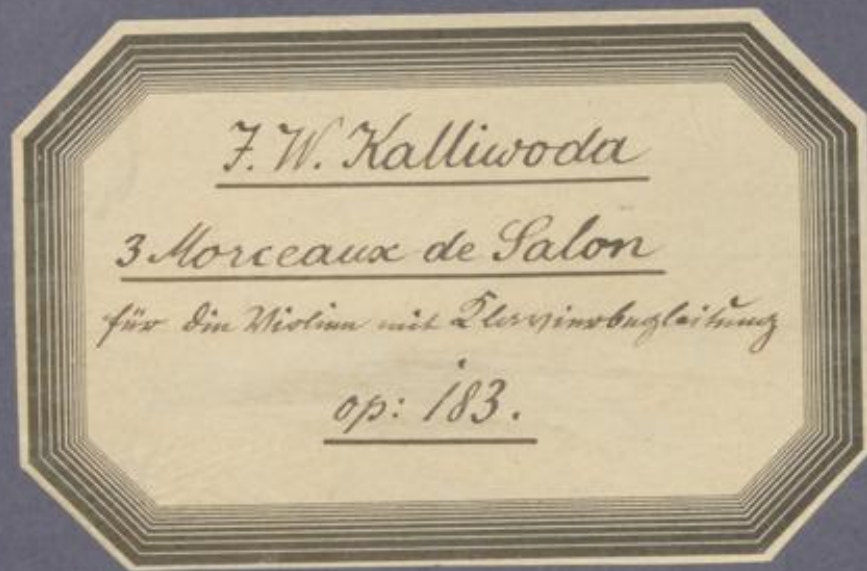 J. W. Kalliwoda
3 Morceaux de Salon
für die Violine mit Klavierbegleitung
op: 183.